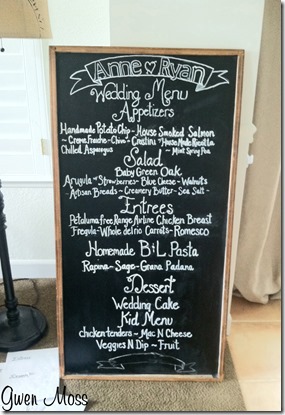 Anne ♥ Ryan
Wedding Menu
Appetizers
Handmade Potato Chip - House Smoked Salmon
~ Creme Fraiche - Chive ~ Crostini ~ House Made Ricotta
Chilled Asparagus ~ Mint Spring Pea
Salad
Baby Green Oak
Arugula ~ Strawberries - Blue Cheese - Walnuts
- Artisan Breads ~ Creamery Butter - Sea Salt -
Entrees
Petaluma free Range Airline Chicken Breast
Fregula - Whole del rio Carrots - Romesco
Homemade BiL Pasta
Rapina - Sage - Grana Padana
Dessert
Wedding Cake
Kid Menu
chicken tenders ~ Mac N Cheese
Veggies N Dip ~ Fruit
Gwen Moss